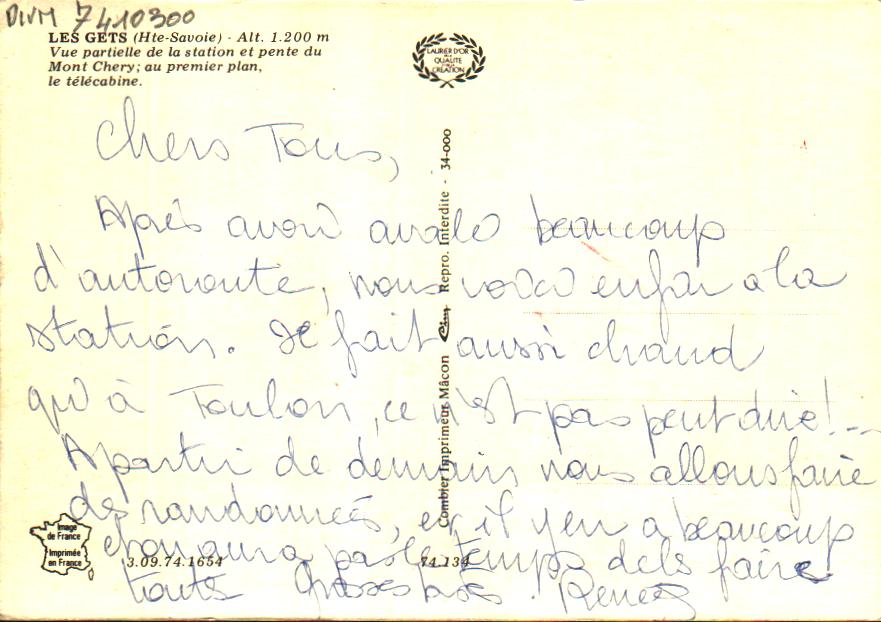 DIVM 7410300
LES GETS (Hte-Savoie) - Alt. 1.200 m
Vue partielle de la station et pente du
Mont Chery; au premier plan,
le télécabine.
LAURIER D'OR
DE LA
QUALITÉ
CRÉATION
Combier Imprimeur Mâcon Cim Repro. Interdite - 34-000
Chers Tous,
Après avoir avalé beaucoup
d'autoroute, nous voici enfin a la
station. Il fait aussi chaud
qu'à Toulon, ce n'est pas peut dire!...
A partir de demain nous allons faire
des randonnées, et il y en a beaucoup
et on aura pas le temps de ls faire
toute Renée
Image
de France
Imprimée
en France
3.09.74.1654 74.134